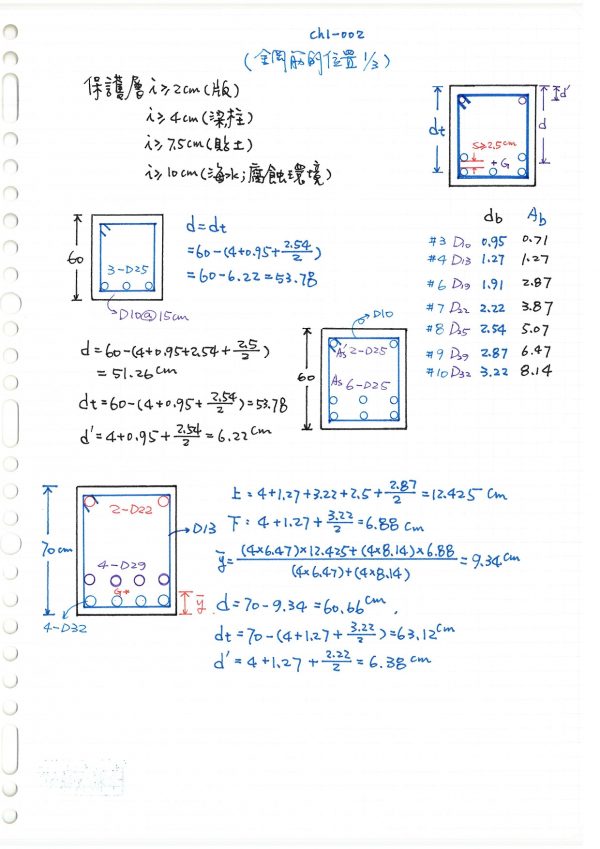 ch1-002
(鋼筋的位置 1/3)
保護層 i≥2cm(版)
i≥4cm(梁柱)
i≥7.5cm(貼土)
i≥10cm(海水;腐蝕環境)
dt
d
d'
S≥2.5cm
+G
60
3-D25
D10@15cm
d=dt
=60-(4+0.95+2.54/2)
=60-6.22=53.78
db Ab
#3 D10 0.95 0.71
#4 D13 1.27 1.27
#6 D19 1.91 2.87
#7 D22 2.22 3.87
#8 D25 2.54 5.07
#9 D29 2.87 6.47
#10 D32 3.22 8.14
d=60-(4+0.95+2.54+2.5/2)
=51.26cm
dt=60-(4+0.95+2.54/2)=53.78
d'=4+0.95+2.54/2=6.22cm
D10
60
As' 2-D25
As 6-D25
70cm
2-D22
D13
4-D29
G*
4-D32
ȳ
上:4+1.27+3.22+2.5+2.87/2=12.425cm
下:4+1.27+3.22/2=6.88cm
ȳ=(4×6.47)×12.425+(4×8.14)×6.88/(4×6.47)+(4×8.14)=9.34cm
d=70-9.34=60.66cm.
dt=70-(4+1.27+3.22/2)=63.12cm
d'=4+1.27+2.22/2=6.38cm